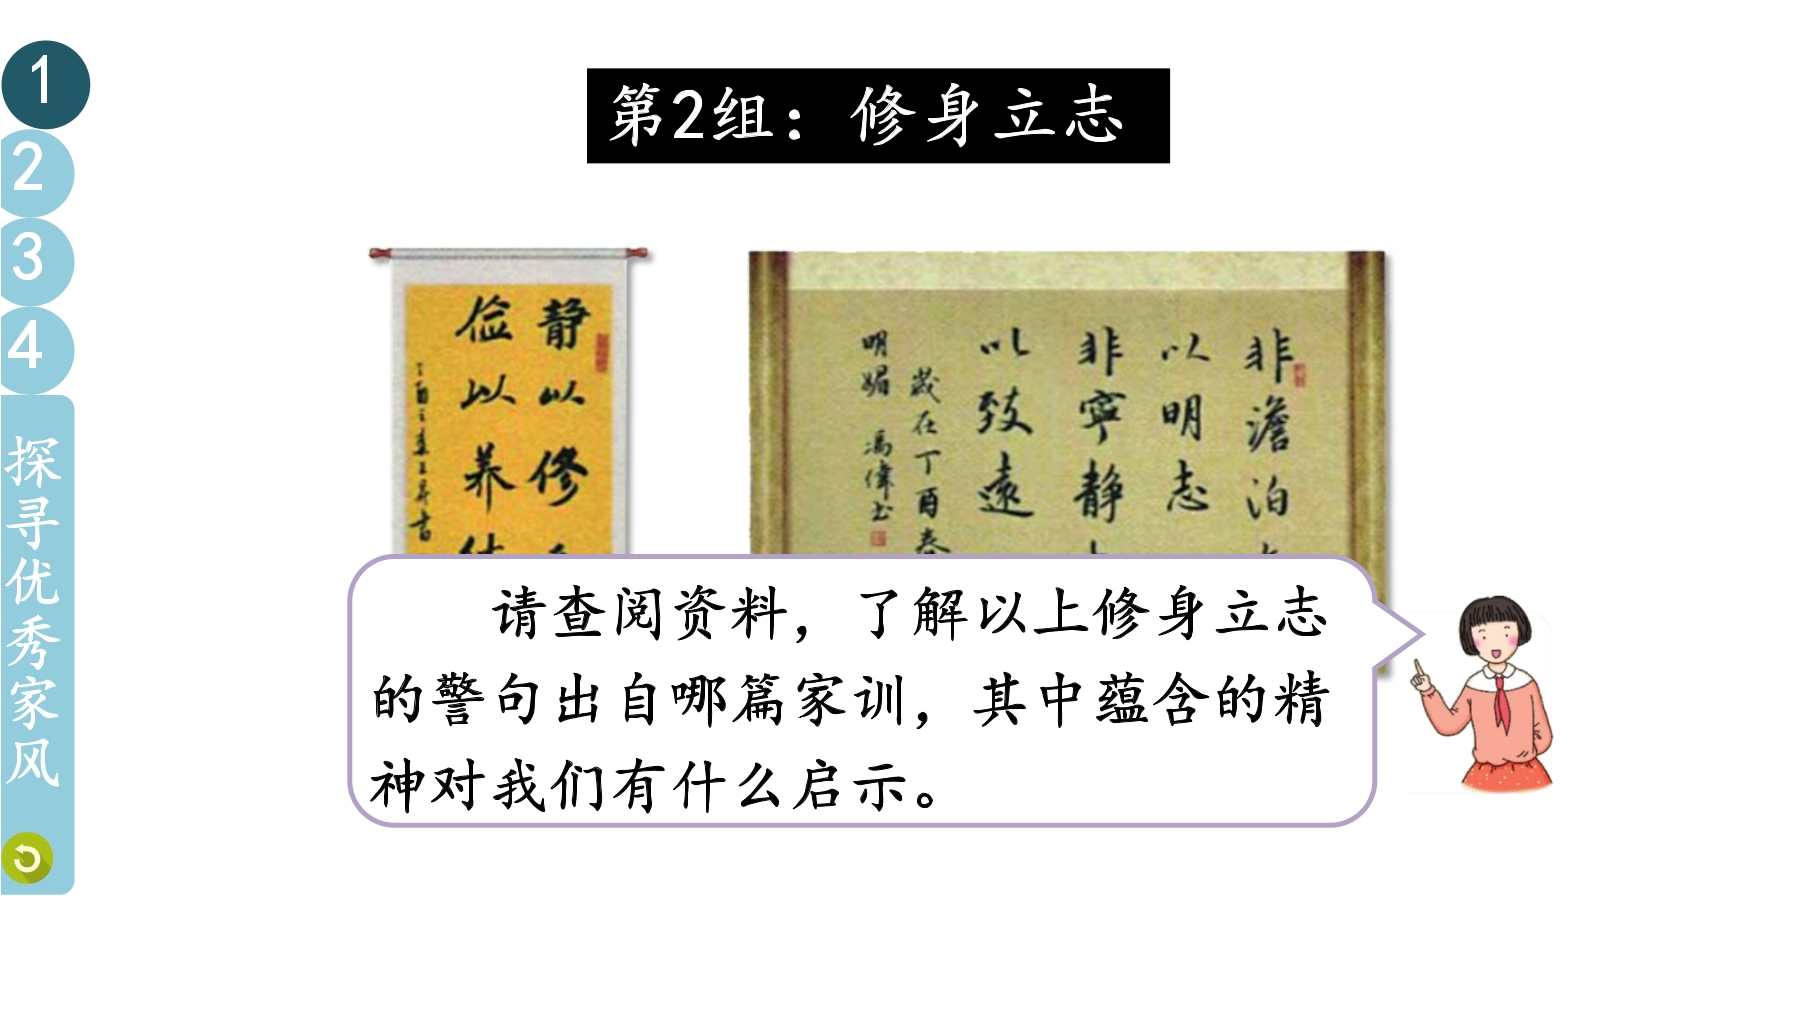 1
2
3
4
探寻优秀家风
第2组：修身立志
静以修
俭以养
非澹泊
以明志
非寧静
以致遠
歲在丁酉春
明媚 馮偉书
请查阅资料，了解以上修身立志
的警句出自哪篇家训，其中蕴含的精
神对我们有什么启示。